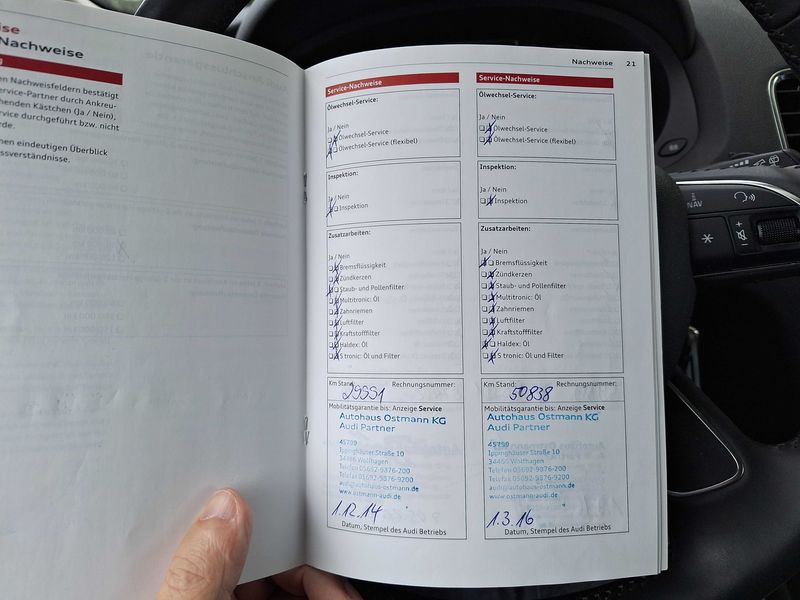 ise
Nachweise
g
en Nachweisfeldern bestätigt
ervice-Partner durch Ankreu-
henden Kästchen (Ja / Nein),
vice durchgeführt bzw. nicht
rde.
nen eindeutigen Überblick
ssverständnisse.
Nachweise 21
Service-Nachweise
Ölwechsel-Service:
Ja / Nein
Ölwechsel-Service
Ölwechsel-Service (flexibel)
Inspektion:
Ja / Nein
Inspektion
Zusatzarbeiten:
Ja / Nein
Bremsflüssigkeit
Zündkerzen
Staub- und Pollenfilter
Multitronic: Öl
Zahnriemen
Luftfilter
Kraftstofffilter
Haldex: Öl
S tronic: Öl und Filter
Km Stand: Rechnungsnummer:
29551
Mobilitätsgarantie bis: Anzeige Service
Autohaus Ostmann KG
Audi Partner
45799
Ippinghäuser Straße 10
34466 Wolfhagen
Telefon 05692-9876-200
Telefax 05692-9876-9200
audi@autohaus-ostmann.de
www.ostmann-audi.de
1.12.14
Datum, Stempel des Audi Betriebs
Service-Nachweise
Ölwechsel-Service:
Ja / Nein
Ölwechsel-Service
Ölwechsel-Service (flexibel)
Inspektion:
Ja / Nein
Inspektion
Zusatzarbeiten:
Ja / Nein
Bremsflüssigkeit
Zündkerzen
Staub- und Pollenfilter
Multitronic: Öl
Zahnriemen
Luftfilter
Kraftstofffilter
Haldex: Öl
S tronic: Öl und Filter
Km Stand: Rechnungsnummer:
50838
Mobilitätsgarantie bis: Anzeige Service
Autohaus Ostmann KG
Audi Partner
45799
Ippinghäuser Straße 10
34466 Wolfhagen
Telefon 05692-9876-200
Telefax 05692-9876-9200
audi@autohaus-ostmann.de
www.ostmann-audi.de
1.3.16
Datum, Stempel des Audi Betriebs
NAV